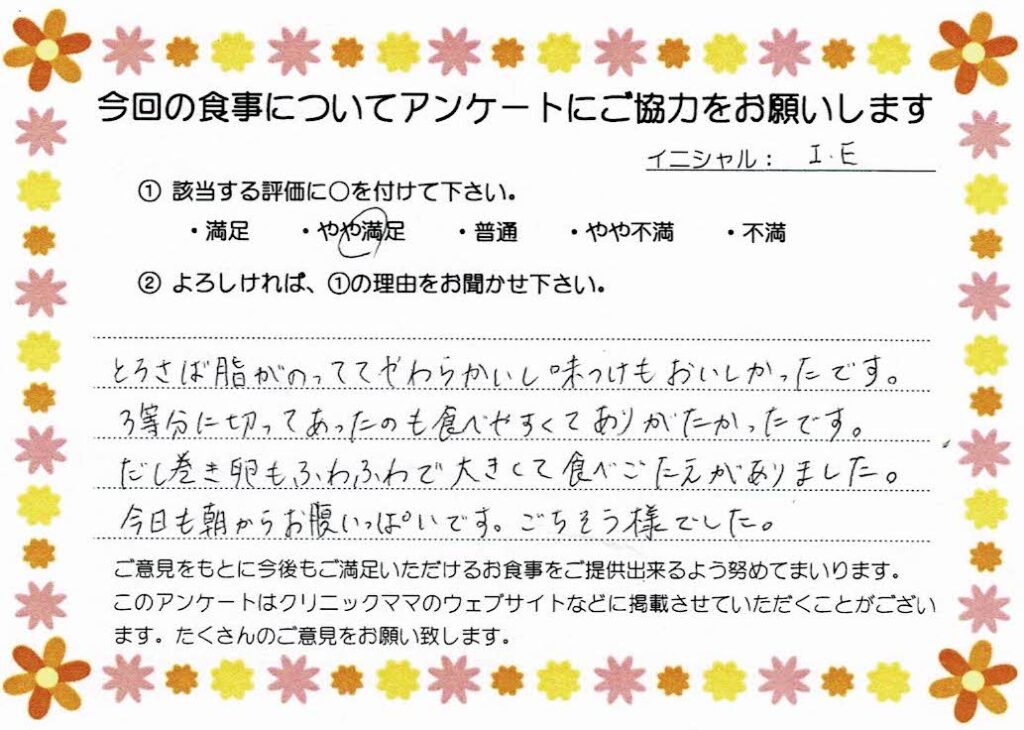 今回の食事についてアンケートにご協力をお願いします
イニシャル： I.E
① 該当する評価に○を付けて下さい。
・満足 ・やや満足 ・普通 ・やや不満 ・不満
② よろしければ、①の理由をお聞かせ下さい。
とろさば脂がのっててやわらかいし味つけもおいしかったです。
3等分に切ってあったのも食べやすくてありがたかったです。
だし巻き卵もふわふわで大きくて食べごたえがありました。
今日も朝からお腹いっぱいです。ごちそう様でした。
ご意見をもとに今後もご満足いただけるお食事をご提供出来るよう努めてまいります。
このアンケートはクリニックママのウェブサイトなどに掲載させていただくことがござい
ます。たくさんのご意見をお願い致します。